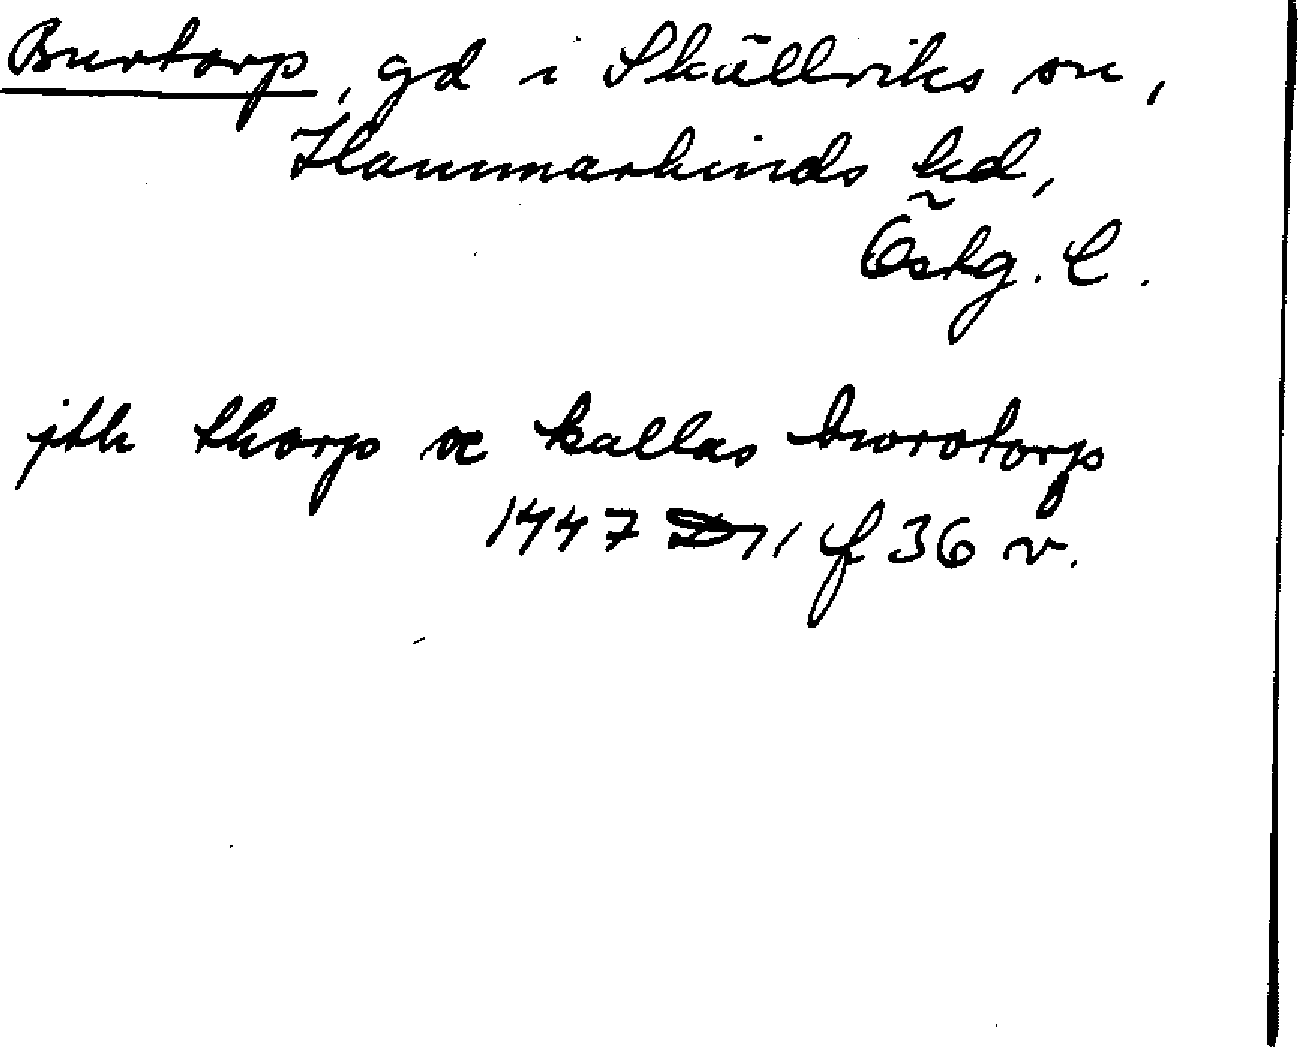 Burtorp, gd i Skällviks sn,
Hammarkinds hd,
Östg. l.
jth thorp sc kallas burotorp
1447 D 7, f 36 v.